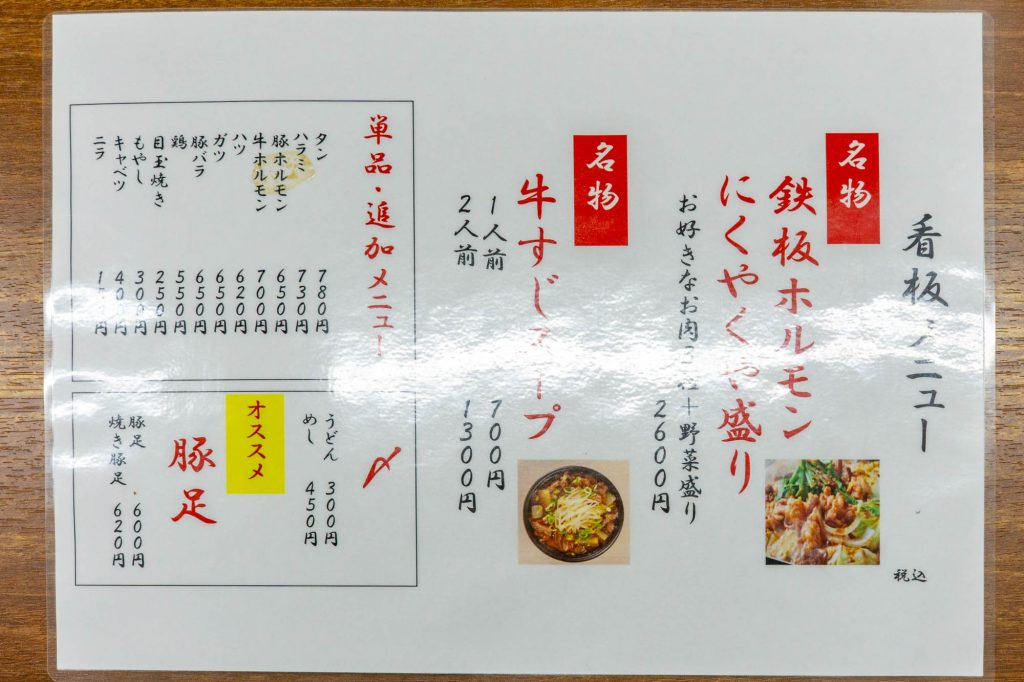 看板メニュー
名物
鉄板ホルモン
にくやくや盛り
お好きなお肉3種+野菜盛り
2600円
名物
牛すじスープ
1人前 700円
2人前 1300円
税込
単品・追加メニュー
タン 780円
ハラミ 730円
豚ホルモン 650円
牛ホルモン 700円
ハツ 620円
ガツ 650円
豚バラ 650円
鶏 550円
目玉焼き 250円
もやし 300円
キャベツ 400円
ニラ
〆
うどん 300円
めし 450円
オススメ
豚足
豚足 600円
焼き豚足 620円